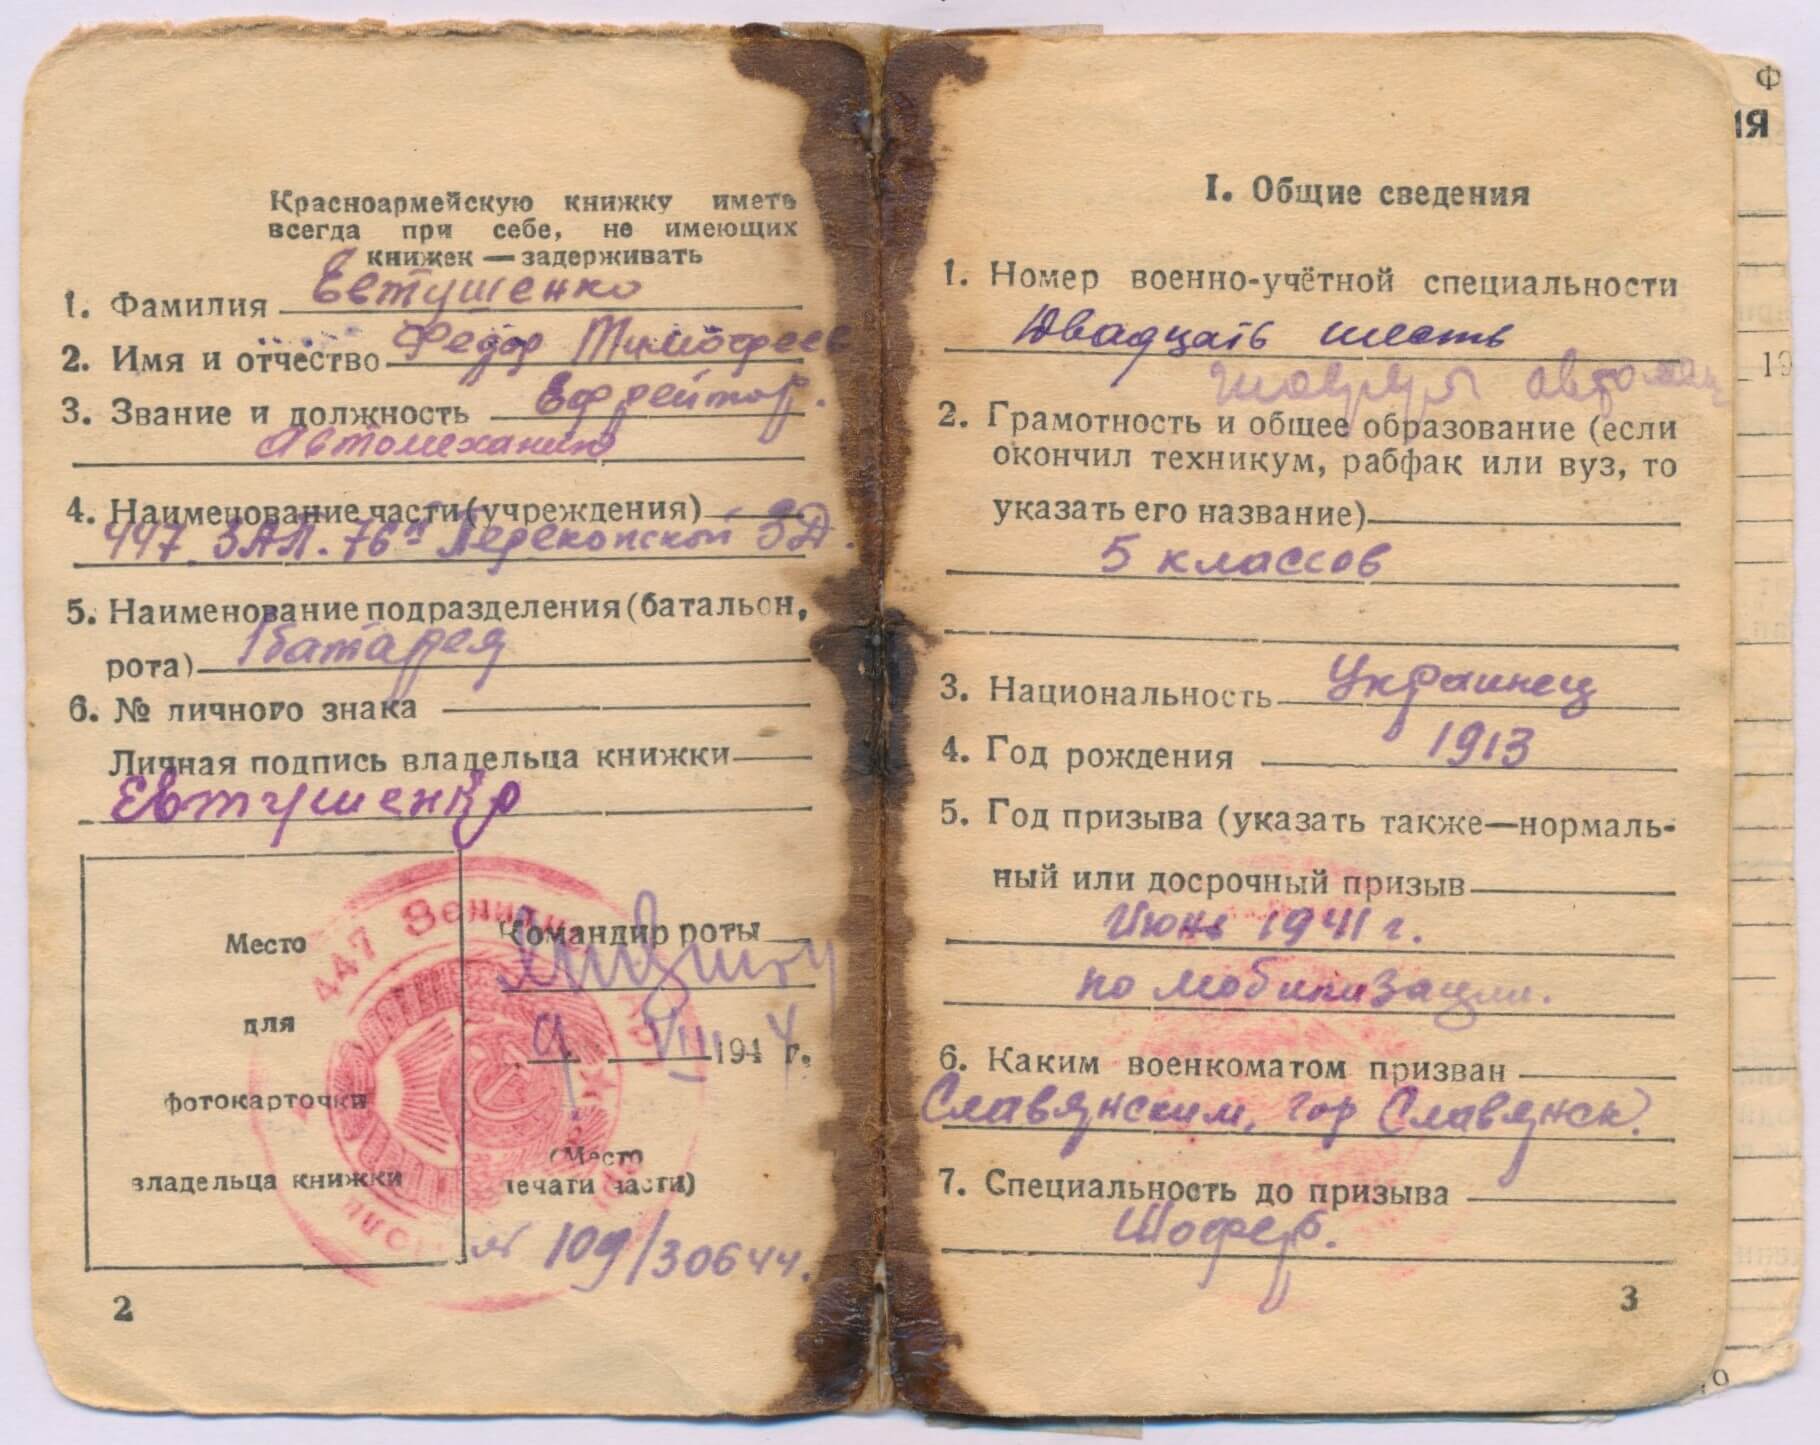 Красноармейскую книжку иметь
всегда при себе, не имеющих
книжек — задерживать
1. Фамилия Евтушенко
2. Имя и отчество Федор Тимофеев
3. Звание и должность Ефрейтор.
Автомеханик
4. Наименование части (учреждения)
447 ЗАП. 76й Перекопской ЗД.
5. Наименование подразделения (батальон,
рота) 1 батарея
6. № личного знака
Личная подпись владельца книжки
Евтушенко
Место
для
фотокарточки
владельца книжки
447 Зенитн
Командир роты
9 VIII 1944 г.
(Место
печати части)
№ 109/30644.
2
I. Общие сведения
1. Номер военно-учётной специальности
Двадцать шесть
2. Грамотность и общее образование (если
окончил техникум, рабфак или вуз, то
указать его название)
5 классов
3. Национальность Украинец
4. Год рождения 1913
5. Год призыва (указать также—нормаль-
ный или досрочный призыв
Июнь 1941 г.
по мобилизации.
6. Каким военкоматом призван
Славянским, гор Славянск.
7. Специальность до призыва
Шофер.
3
Ф
ИЯ
19